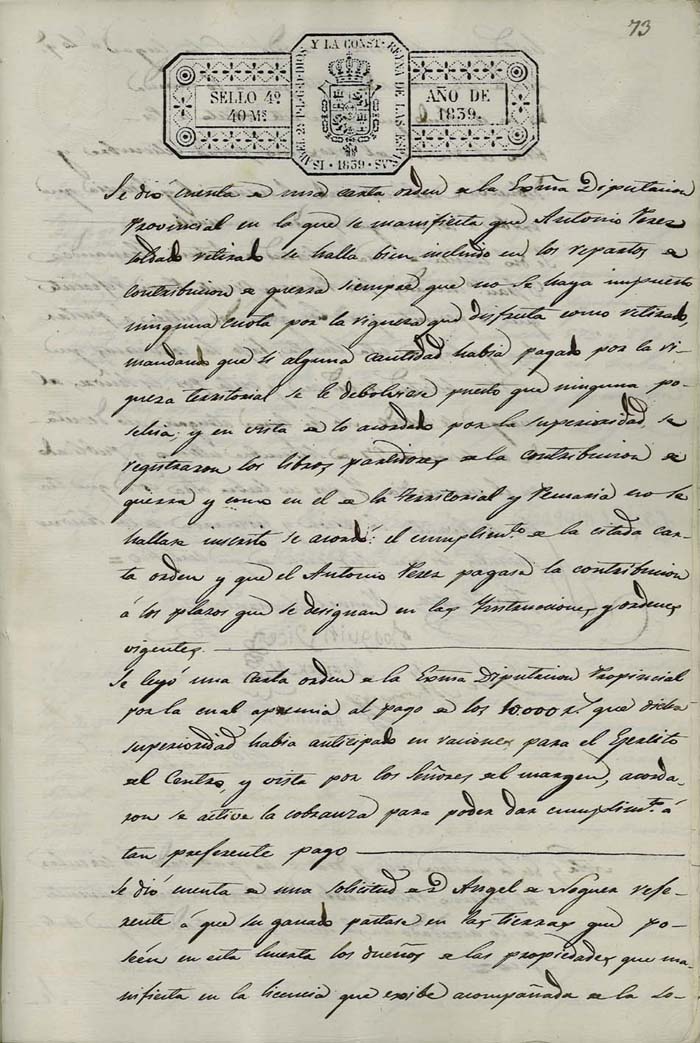 73
ISABEL 2ª P. LA G. D DIOS Y LA CONST. REYNA DE LAS ESPAÑAS · 1839 ·
SELLO 4º
40 Mˢ
AÑO DE
1839.
Se dió cuenta de una carta orden de la Exma Diputacion
Provincial en la que se manifiesta que Antonio Perez
soldado retirado se halla bien incluido en los repartos de
contribucion de guerra siempre que no se haya impuesto
ninguna cuota por la riqueza que disfruta como retirado,
mandando que si alguna cantidad habia pagado por la ri-
queza territorial se le debolviese puesto que ninguna po-
sehia: y en vista de lo acordado por la superioridad se
registraron los libros partidores de la contribucion de
guerra y como en el de la territorial y Pecuaria no se
hallase inscrito se acordó: el cumplimᵗᵒ de la citada car-
ta orden y que el Antonio Perez pagase la contribucion
á los plazos que se designan en las Instrucciones y ordenes
vigentes.
Se leyó una carta orden de la Exma Diputacion Provincial
por la cual apremia al pago de los 10.000 rˢ que dicha
superioridad habia anticipado en raciones para el Ejercito
del Centro, y vista por los Señores del margen, acorda-
ron se active la cobranza para poder dar cumplimᵗᵒ á
tan preferente pago
Se dió cuenta de una solicitud de D. Angel de Noguera refe-
rente á que su ganado pastase en las tierras que po-
séen en esta huerta los dueños de las propiedades que ma-
nifiesta en la licencia que exibe acompañada de la so-